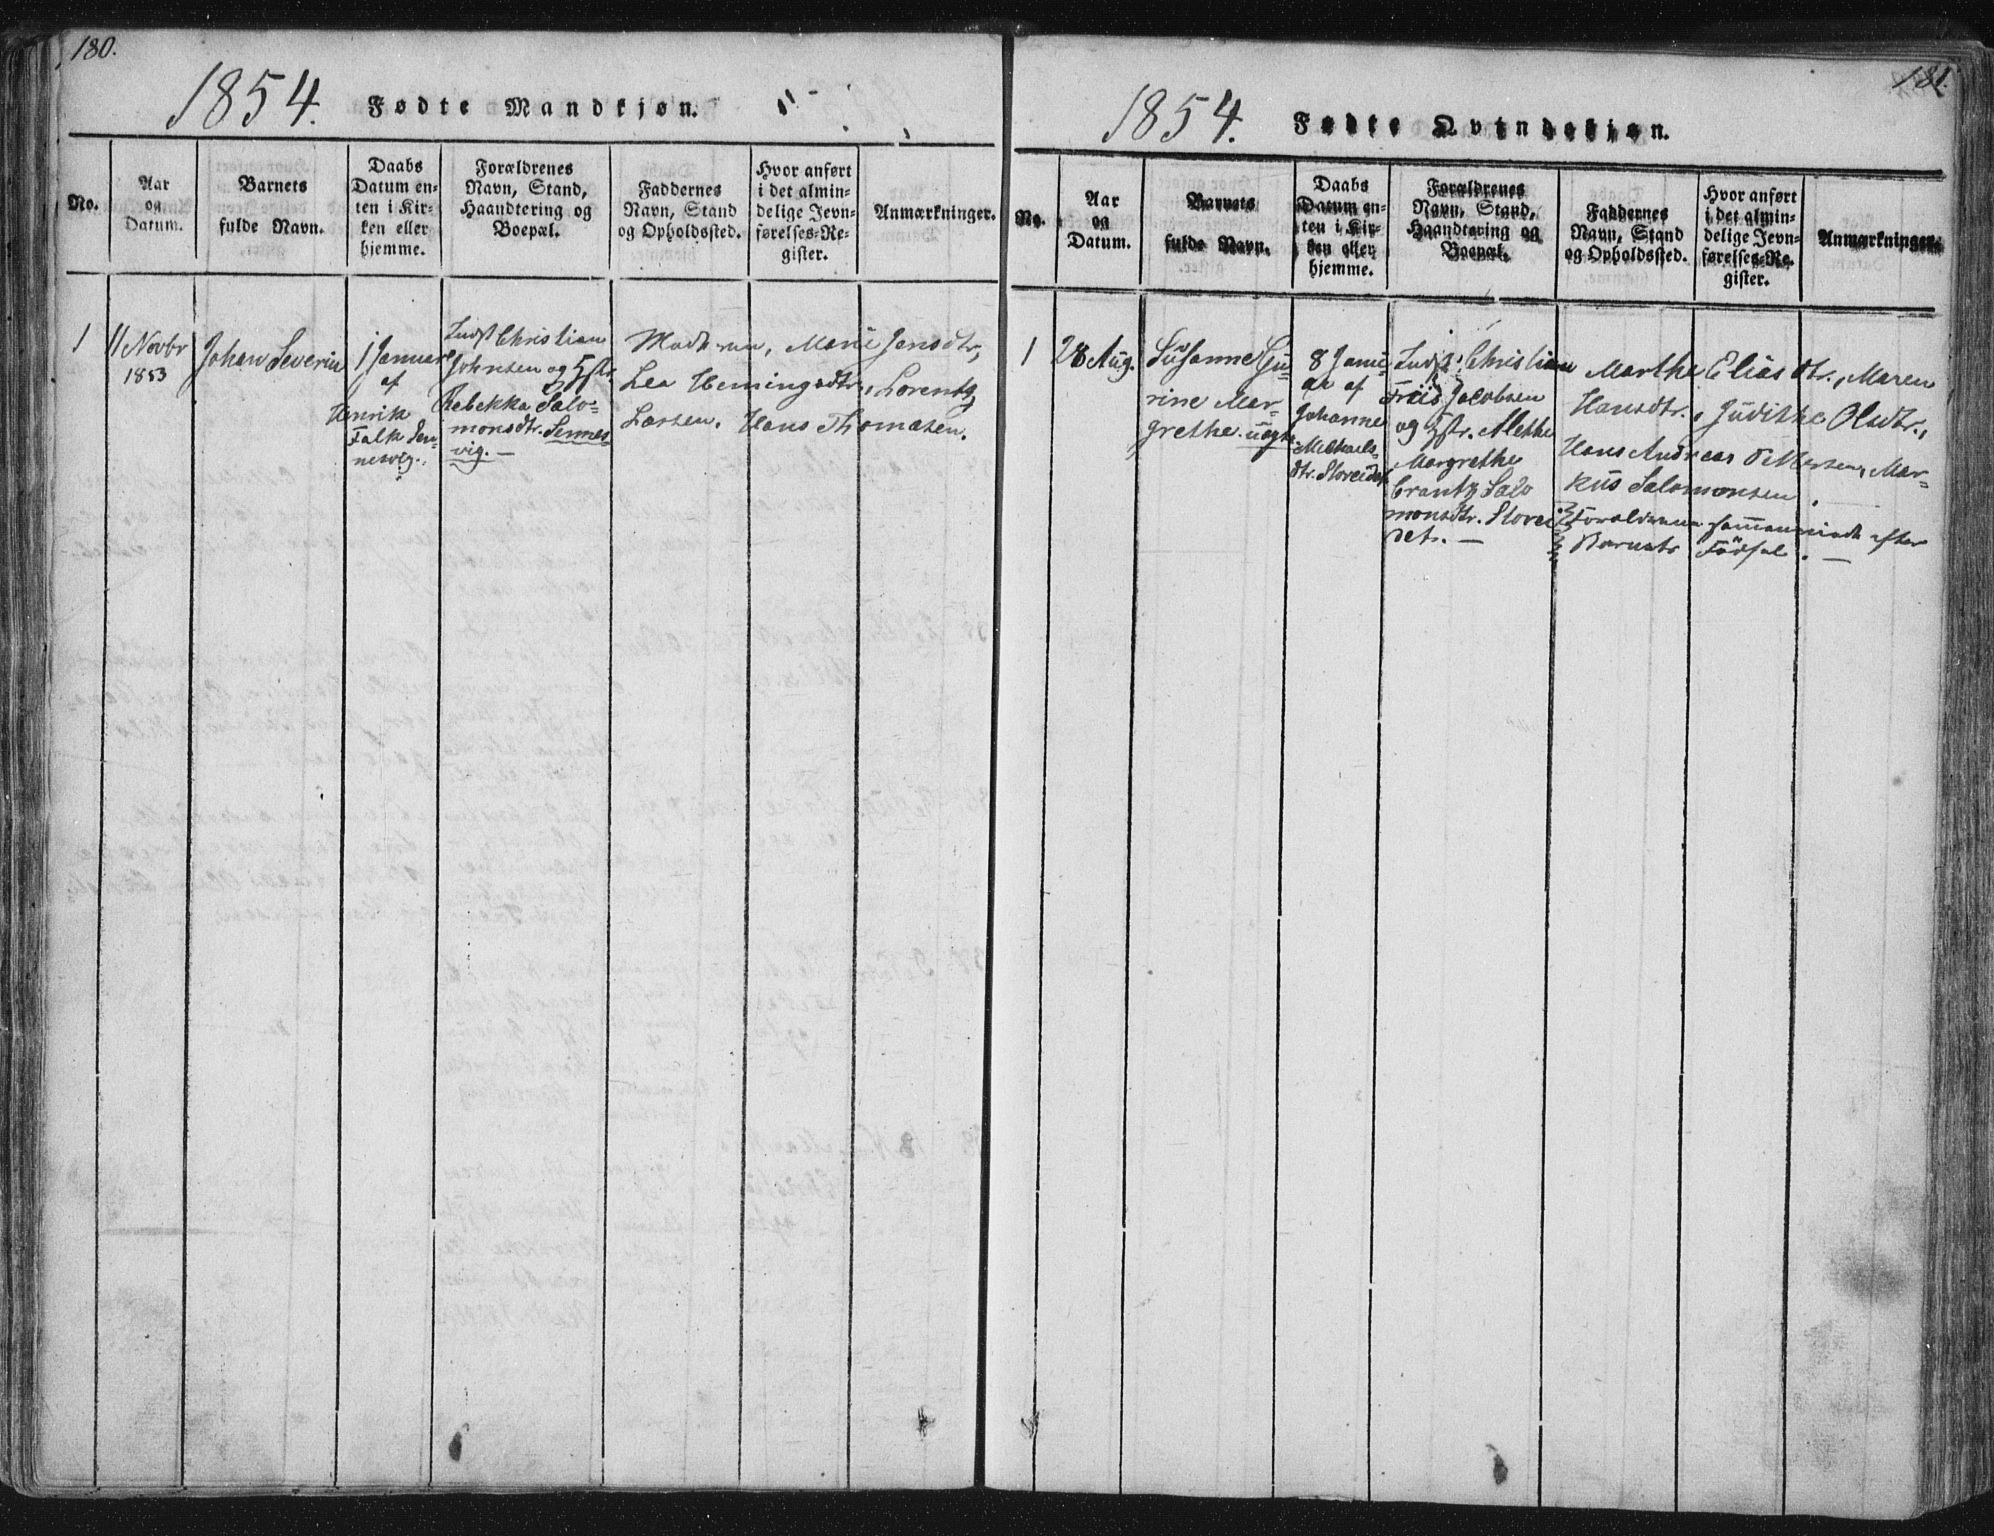 180.
1854. Fødte Mandkjøn.
No.
Aar
og
Datum.
Barnets
fulde Navn.
Daabs
Datum en-
ten i Kir-
ken eller
hjemme.
Forældrenes
Navn, Stand,
Haandtering og
Boepæl.
Faddernes
Navn, Stand
og Opholdssted.
Hvor anført
i det almin-
delige Jevn-
førelses-Re-
gister.
Anmærkninger.
1
11 Novbr
1853
Johan Severin
1 Januar
af
Henrik
Falk Sen-
nesvig.
Indst Christian
Johnsen og Hstr.
Rebekka Salo-
monsdtr. Sennes-
vig. —
Moderen, Marie Jensdtr,
Lea Hemingsdtr, Lorentz
Larsen. Hans Thomasen.
181.
1854. Fødte Qvindekjøn.
No.
Aar
og
Datum.
Barnets
fulde Navn.
Daabs
Datum en-
ten i Kir-
ken eller
hjemme.
Forældrenes
Navn, Stand,
Haandtering og
Boepæl.
Faddernes
Navn, Stand
og Opholdssted.
Hvor anført
i det almin-
delige Jevn-
førelses-Re-
gister.
Anmærkninger.
1
28 Aug.
Susanne Gu-
rine Mar-
grethe. uægte
8 Janu-
ar af
Johanne
Mickaels-
dtr. Storeidet
Indst. Christian
Friis Jacobsen
og Hstr. Alethe
Margrethe
Crantz Salo
monsdtr. Storei
det. —
Marthe Eliasdtr., Maren
Hansdtr., Judithe Olsdtr.,
Hans Andreas Pettersen, Mar-
kus Salomonsen.
Forældrene sammenviede efter
Barnets Födsel. —